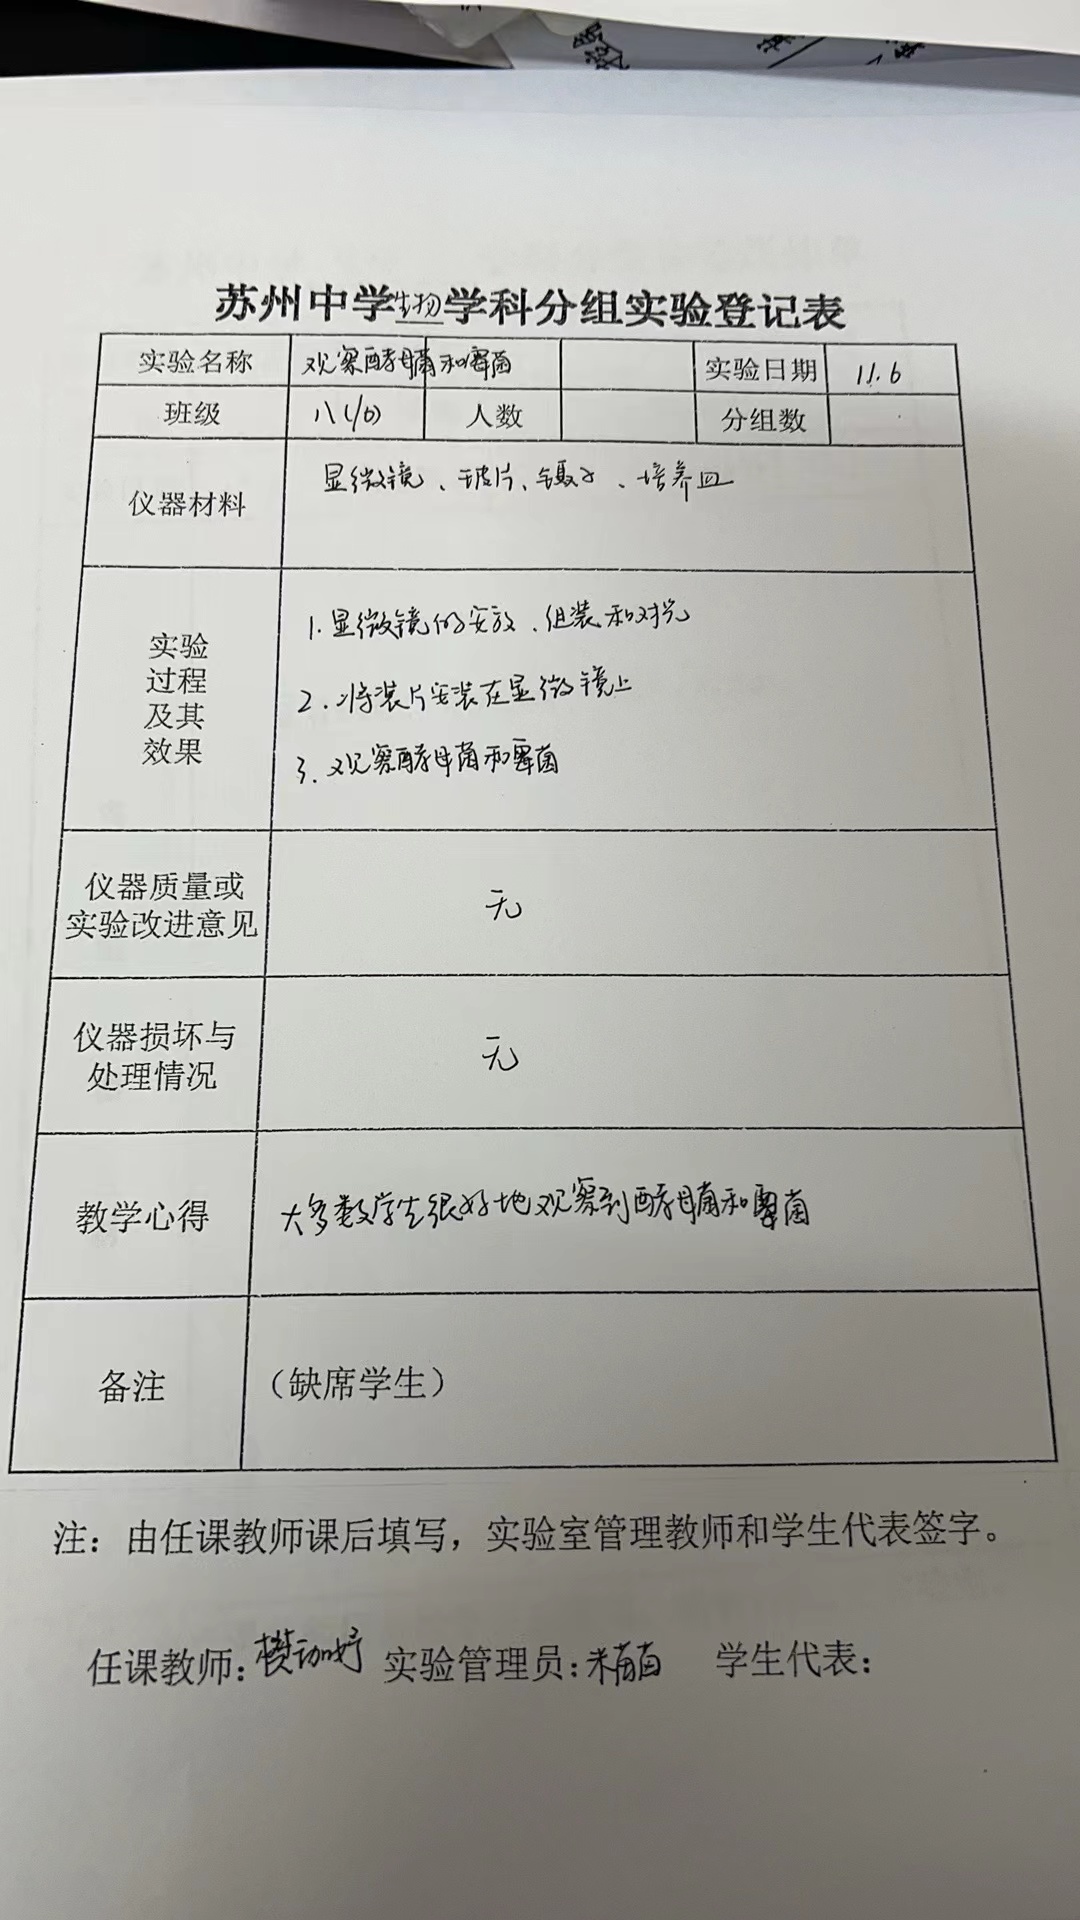 苏州中学生物学科分组实验登记表
实验名称 观察酵母菌和霉菌 实验日期 11.6
班级 八(10) 人数 分组数
仪器材料 显微镜、玻片、镊子、培养皿
实验
过程
及其
效果
1.显微镜的安放、组装和对光
2.将装片安装在显微镜上
3.观察酵母菌和霉菌
仪器质量或
实验改进意见
无
仪器损坏与
处理情况
无
教学心得 大多数学生很好地观察到酵母菌和霉菌
备注 (缺席学生)
注：由任课教师课后填写，实验室管理教师和学生代表签字。
任课教师: 实验管理员: 学生代表: